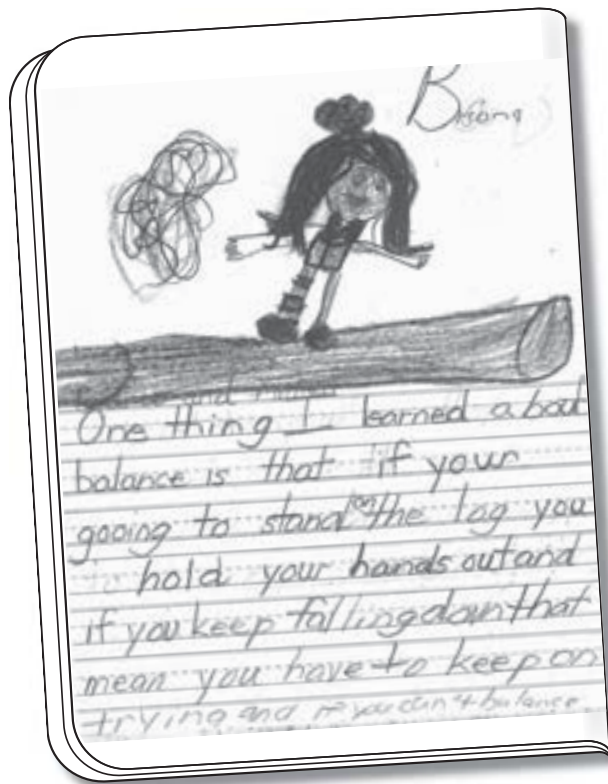 One thing I learned about
balance is that if your
gooing to stand on the log you
hold your hands out and
if you keep falling down that
mean you have to keep on
trying and if you can't balance